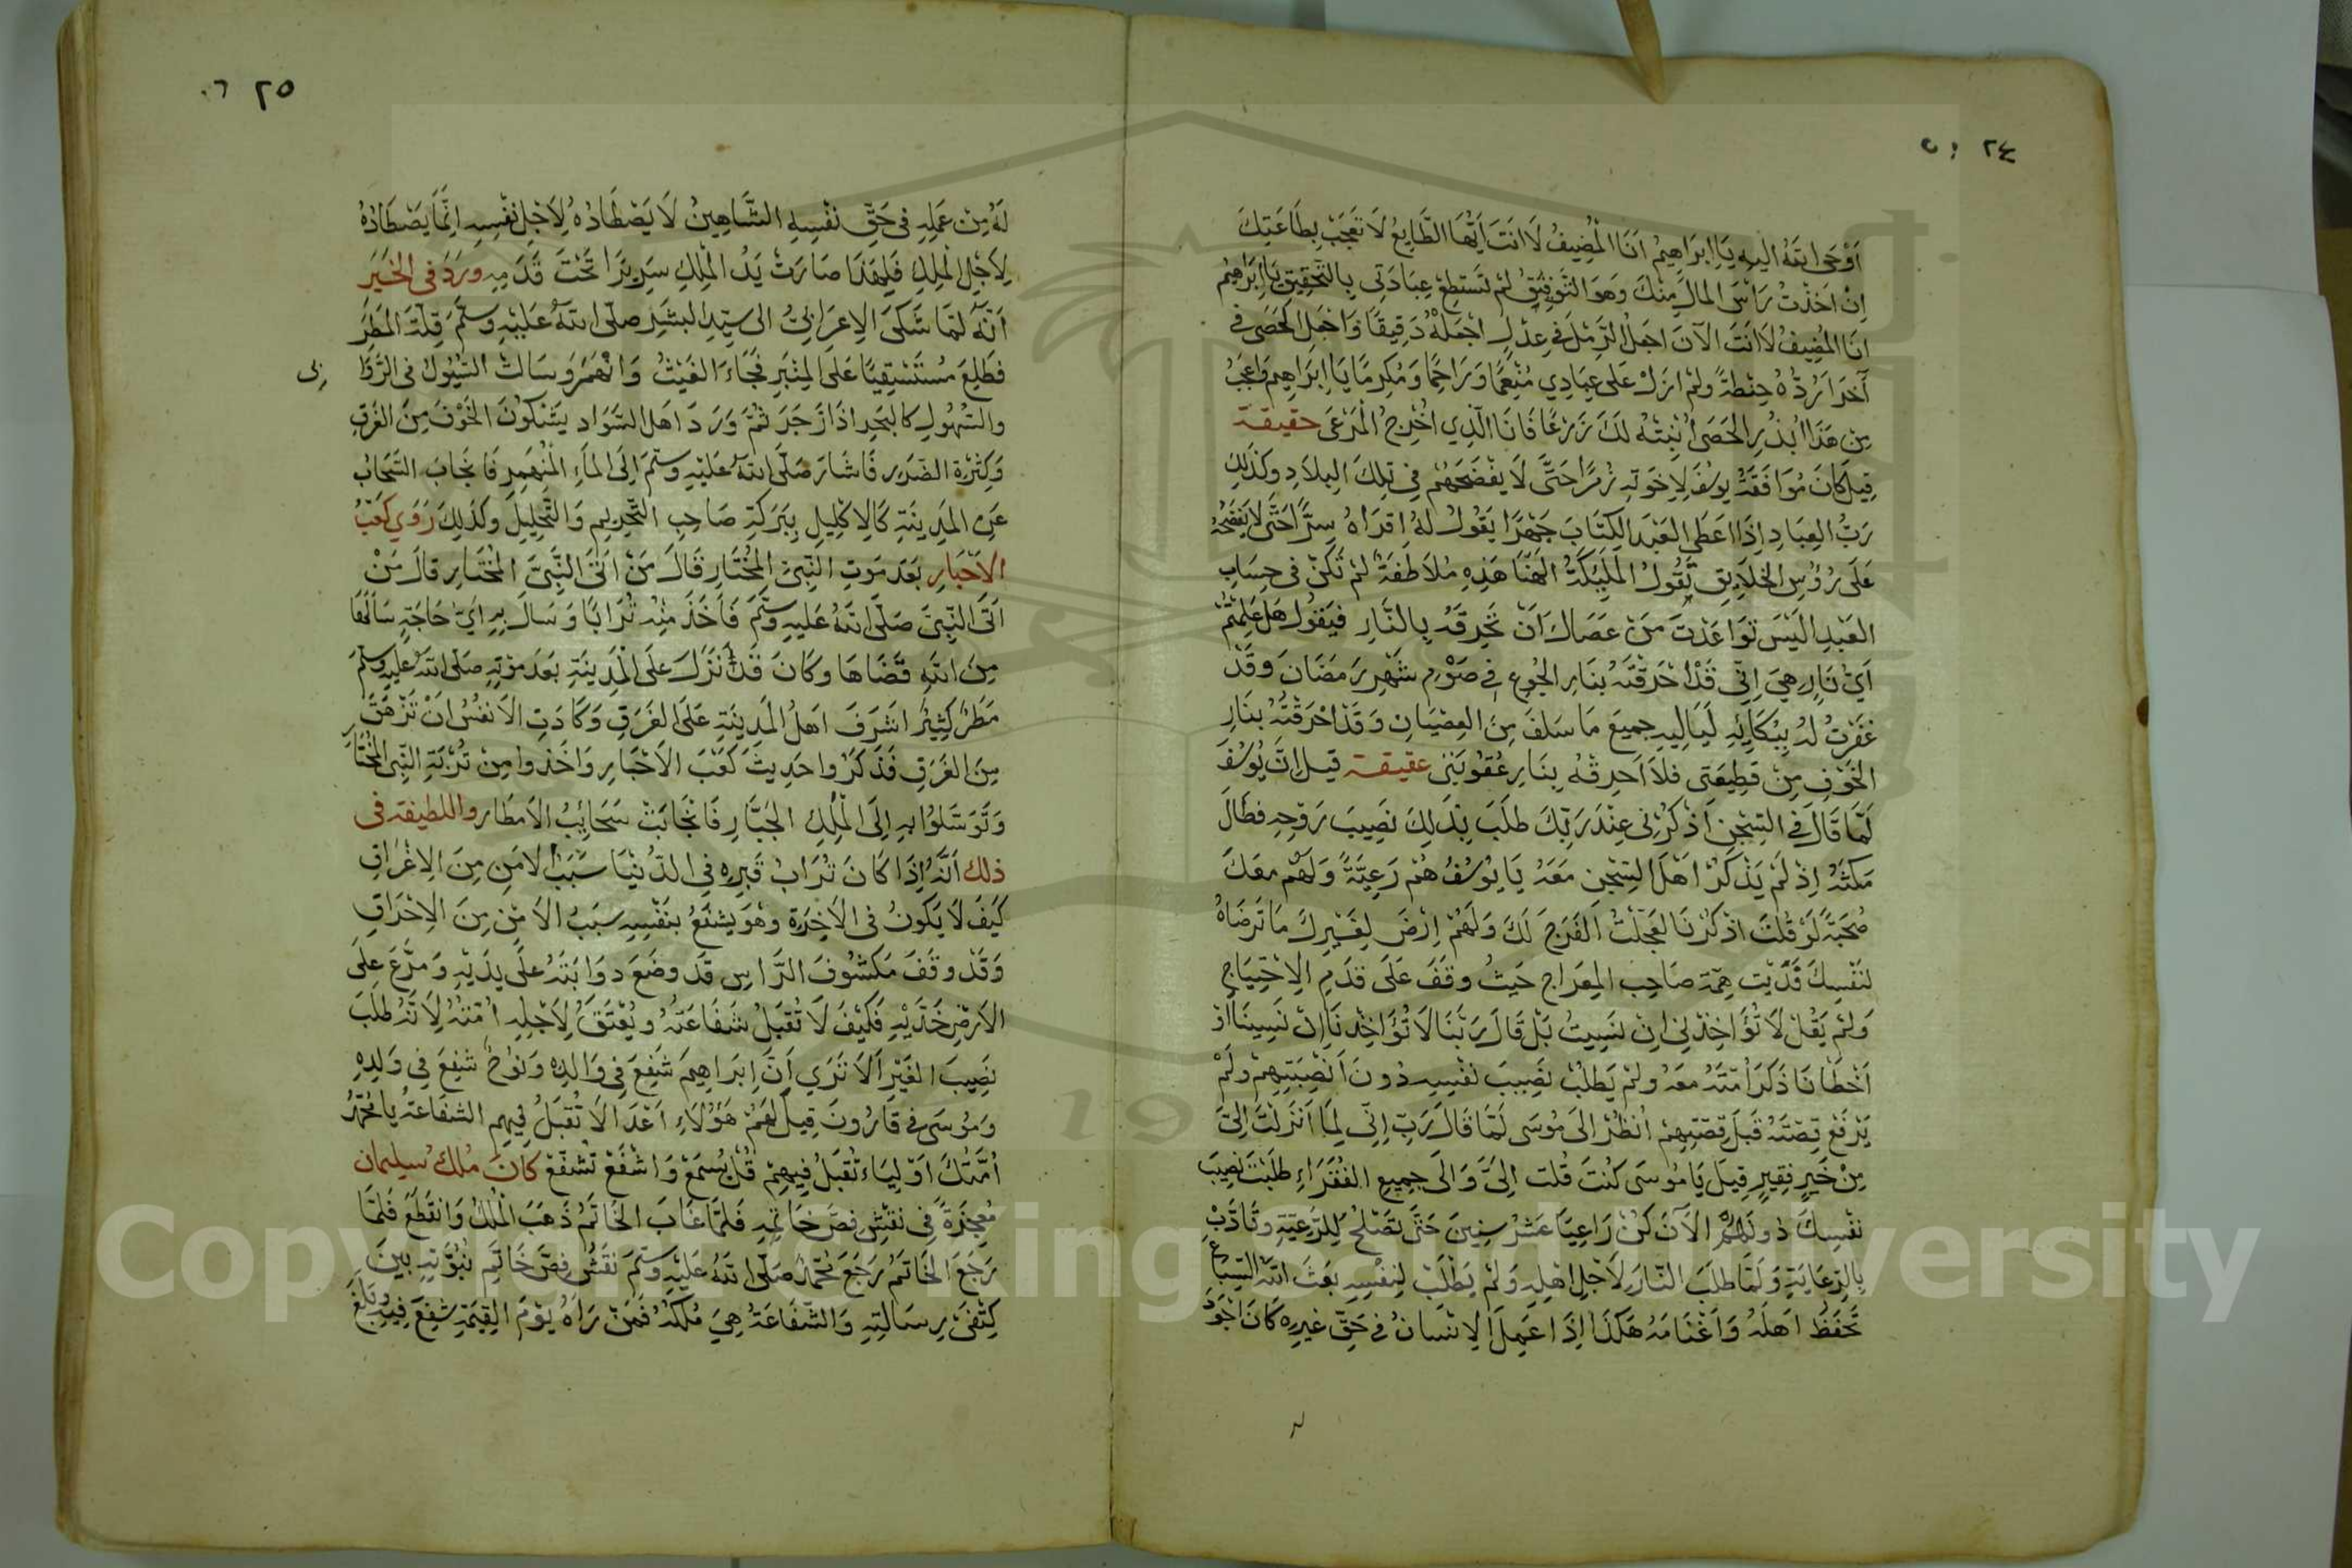 ٢٤
اَوْحَى اللهُ اليهِ يَا اِبرَاهِيمُ اَنَا الْمُضِيفُ لَا اَنتَ اَيُّهَا الطَّايِعُ لَا تَعْجَبْ بِطَاعَتِكَ
اِنْ اَخَذْتُ رَأسَ المالِ مِنْكَ وَهوَ التَّوفِيقُ لمْ تَستَطِعْ عِبَادَتِي بِالتَّحْقِيقِ يَا اِبرَاهِيمُ
انَا المُضِيفُ لَا اَنتَ الآنَ اجعَلْ الرَّملَ في عِدْلٍ اجْعَلْهُ دَقِيقًا وَاجْعَلِ الحَصَى في
آخَرَ اَرُدُّهُ حِنطَةً ولمْ ازَلْ على عِبَادِي مُنْعِمًا وَرَاحِمًا وَمُكرِمًا يَا اِبرَاهِيم وَاعجَبُ
مِن هَذَا ابْذُرِ الحَصَى اُنْبِتْهُ لكَ زَرْعًا فَانَا الَّذِي اُخرِجُ المَرْعَى حقيقة
قِيلَ كَانَ مُوَافَقَةُ يُوسُفَ لِاِخوَتِهِ رَمْزًا حَتَّى لَا يَفْضَحَهُم في تِلكَ البِلَادِ وكَذلِكَ
رَبُّ العِبَادِ اِذَا اعطَى العَبْدَ الكِتَابَ جَهْرًا يَقُولُ لهُ اِقرَاهُ سِرًّا حَتَّى لَا يَفْضَحَهُ
عَلَى رُؤُسِ الخَلَايِقِ تَقُولُ المَلَيِكَةُ الَهَنَا هَذِهِ مُلَاطَفَةٌ لمْ تَكُنْ في حِسَابِ
العَبْدِ اَلَيْسَ تَوَاعَدْتَ مَنْ عَصَاكَ اَنْ تُحرِقَهُ بِالنَّارِ فيَقُولُ هَل عَلِمْتُمْ
اَيْ نَارٍ هِيَ اِنِّي قَدْ اَحْرَقْتُهُ بِنَارِ الجُوعِ في صَوْمِ شَهْرِ رَمَضَانَ وَقَدْ
غَفَرْتُ لهُ بِبُكَائِهِ لَيَالِيهِ جميعَ مَا سَلَفَ مِنَ العِصْيَانِ وَقَدْ احْرَقْتُهُ بنَارِ
الخَوْفِ مِنْ قَطِيعَتي فلَا اَحرِقُهُ بِنَارِ عُقُوبَتي عقيقة قيلَ اِنَّ يُوسُفَ
لَمَّا قَالَ في السِّجْنِ اَذْكُرْنِي عِنْدَ رَبِّكَ طَلَبَ بِذَلِكَ نَصِيبَ رَوْحِهِ فطَالَ
مَكثُهُ اِذْ لَمْ يَذْكُرْ اهْلَ السِّجْنِ مَعَهُ يَا يُوسُفُ هُمْ رَعِيَّةٌ وَلَهُم مَعَكَ
صُحبَةٌ لَوْ قُلتَ اذْكُرْنَا لَعَجَّلْتُ الفَرَجَ لَكَ وَلَهُمْ اِرْضَ لِغَيْرِكَ مَا تَرْضَاهُ
لنَفْسِكَ فَدَّيْت هِمَّةَ صَاحِبِ المِعرَاجِ حَيثُ وقَفَ عَلَى قدَمِ الِاحْتِيَاجِ
وَلَمْ يَقُلْ لَا تُؤَاخِذْنِي اِنْ نَسِيتُ بَلْ قَالَ رَبَّنَا لَا تُؤَاخِذْنَا اِنْ نَسِينَا اَوْ
اَخْطَانَا ذَكَرَ اُمَّتَهُ مَعَهُ ولمْ يَطلُبْ نَصِيبَ نَفْسِهِ دُونَ اَنْصِبَتِهِمْ وَلَمْ
يَرْفَعْ قِصَّتَهُ قَبْلَ قِصَّتِهِمْ اُنظُرْ اِلَى مُوسَى لَمَّا قَالَ رَبِّ اِنِّي لِمَا اَنْزَلْتَ اِلَيَّ
مِنْ خَيرٍ فَقِيرٍ قِيلَ يَا مُوسَى كُنتَ قُلتَ اِلَيَّ وَالَى جميعِ الفُقَرَاءِ طَلَبْتَ نَصِيبَ
نَفْسِكَ دُونَهُم الآنَ كُنْ رَاعِيًا عَشْرَ سِنِينَ حَتَّى تَصْلُحَ لِلرَّعِيَّةِ وتَاَدَّبْ
بِالرِّعَايَةِ وَلَمَّا طَلَبَ النَّارَ لِاَجْلِ اهْلِهِ وَلَمْ يَطْلُبْ لنَفْسِهِ بَعَثَ اللهُ السِّبَاعَ
تَحفَظُ اَهلَهُ وَاَغْنَامَهُ هَكَذَا اِذَا عَمِلَ الانسَانُ في حَقِّ غيرِهِ كَانَ اجْوَدَ
٢٥
لَهُ مِنْ عَمَلِهِ في حَقِّ نفْسِهِ الشَّاهِينُ لَا يَصْطَادُهُ لِاَجْلِ نَفْسِهِ اِنَّمَا يَصْطَادُهُ
لِاَجْلِ المَلِكِ فَلِهَذَا صَارَتْ يَدُ المَلِكِ سَرِيرًا تَحْتَ قَدَمِهِ ورَدَ في الخَبَر
اَنَّهُ لَمَّا شَكَى الاِعرَابيُّ الى سيِّدِ البَشَرِ صلَّى اللهُ عَلَيْهِ وَسلَّمَ قِلَّةَ المَطَرِ
فطَلِعَ مُستَسْقِيًا عَلَى المِنْبَرِ فجَاءَ الغَيْثُ وَانْهَمَرَ وَسَالَتْ السُّيُولُ في الرَّوَا
بى
والسُّهُولِ كالبَحرِ اِذَا زَجَرَ ثُمَّ وَرَدَ اهلُ السَّوَادِ يَشْكُونَ الخَوْفَ مِنَ الغَرَقِ
وَكَثْرَةِ الضَّرَرِ فَاشَارَ صَلَّى اللهُ عَلَيْهِ وسلَّمَ اِلَى المَاءِ المُنْهَمِرِ فَانجَابَ السَّحَابُ
عَنِ المَدِينَةِ كَالاِكْلِيلِ بِبَرَكَةِ صَاحِبِ التَّحرِيمِ وَالتَّحْلِيلِ وَكَذلِكَ رَوَي كَعْبُ
الاَحْبَارِ بَعْدَ مَوتِ النَّبيِّ المُخْتَارِ قَالَ مَنْ اَتَى النَّبيَّ المُخْتَارِ قالَ مَنْ
اَتَى النَّبيَّ صَلَّى اللهُ عَلَيهِ وسَلَّمَ فَاَخَذَ مِنْهُ تُرَابًا وَسَالَ بِهِ اَيّ حَاجَةٍ سَاَلَهَا
مِنَ اللهِ قَضَاهَا وَكَانَ قَدْ نَزَلَ عَلَى المَدِينَةِ بَعْدَ مَوْتِهِ صَلَّى اللهُ عَلَيهِ وسلَّمَ
مَطَرٌ كَثِيرٌ اَشرَفَ اَهلُ المَدِينَةِ عَلَى الغَرَقِ وَكَادَتِ الاَنفُسُ اَنْ تَزْهَقَ
مِنَ الغَرَقِ فَذَكَرُوا حَدِيثَ كَعْبَ الاَحْبَارِ وَاخَذُوا مِنْ تُرْبَةِ النَّبي المُختَارِ
وَتَوَسَّلُوا بِهِ اِلَى المَلِكِ الجَبَّارِ فَانجَابَتْ سَحَائِبُ الاَمطَارِ واللطيفة في
ذلك اَنَّهُ اِذَا كَانَ تُرَابُ قَبرِهِ في الدُّنيَا سَبَبُ الاَمنِ مِنَ الاِغرَاقِ
كَيْفَ لَا يَكُونُ في الاَخِرَةِ وَهُوَ يَشْفَعُ بِنَفْسِهِ سَبَبُ الاَمْنِ مِنَ الاِحْرَاقِ
وَقَدْ وقَفَ مَكشُوفَ الرَّاسِ قَد وضَعَ دوَابَتَهُ عَلَى يَدَيْهِ وَمَرَّغَ عَلَى
الاَرْضِ خَدَّيْهِ فَكَيْفَ لَا تُقبَلُ شَفَاعَتُهُ وَيُعْتَقُ لِاَجْلِهِ اُمَّتُهُ لِاَنَّهُ طَلَبَ
نَصِيبَ الغَيْرِ اَلَا تَرَي اَنَّ اِبرَاهِيمَ شَفَعَ في وَالِدِهِ وَنُوحٌ شَفِعَ في وَلَدِهِ
وَمُوسَى في قَارُونَ قِيلَ لَهُمْ هَؤُلَاءِ اَعْدَا لَا تُقبَلُ فِيهِم الشَّفَاعَةُ يا محمَّدُ
اُمَّتُكَ اَوْلِيَاء تُقبَلُ فِيهِمْ قُلْ يُسْمَعْ وَاشْفَعْ تُشَفَّعْ كَانَ مُلكُ سليمان
مُعجِزَةً في نَقْشِ فَصِّ خَاتَمِهِ فَلَمَّا غَابَ الخَاتَمُ ذَهَبَ المُلكُ وَانْقَطَعَ فَلَمَّا
رَجَعَ الخَاتَمُ رَجَعَ محمَّدٌ صَلَّى اللهُ عَلَيهِ وسلَّمَ نَقْشُ فَصِّ خَاتَمِ نُبُوَّتِهِ بَينَ
كِتْفَيْ رِسَالَتِهِ وَالشَّفَاعَةُ هِيَ مُلكُهُ فَمَنْ رَاَهُ يَوْمَ القِيمَةِ شفِعَ فِيهِ وبَلَغَ
Copyright © King Saud University